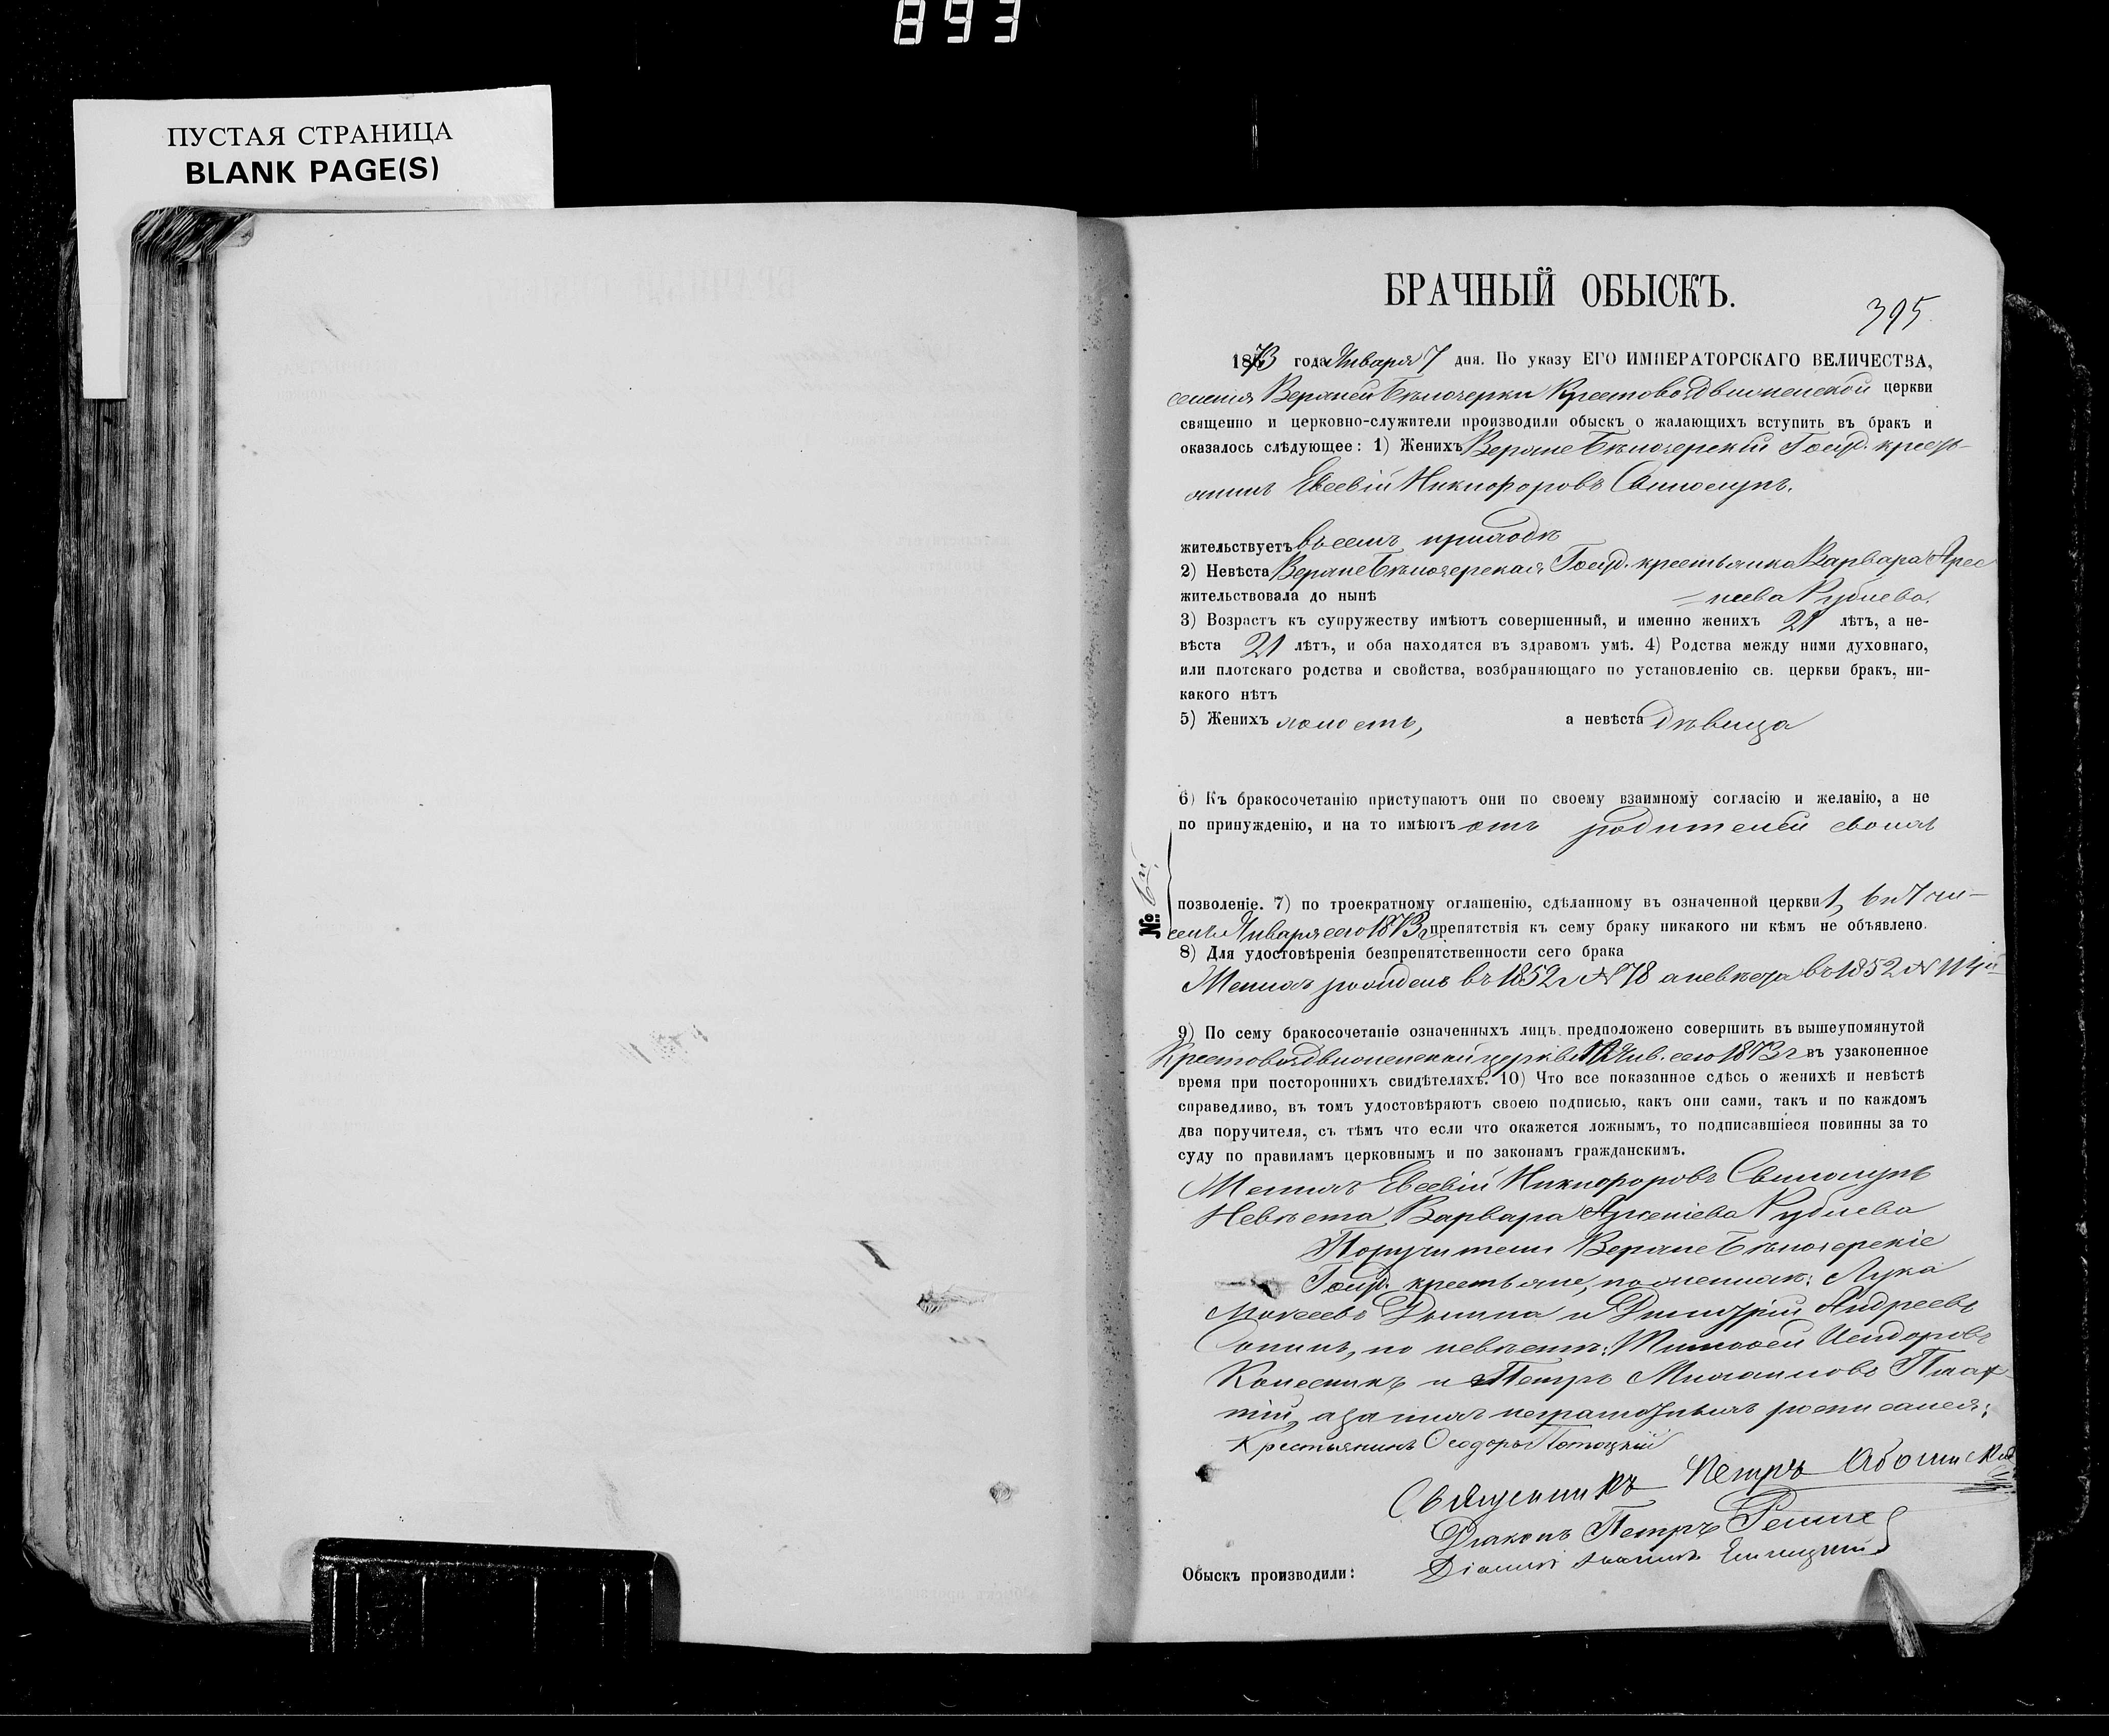 893
ПУСТАЯ СТРАНИЦА
BLANK PAGE(S)
БРАЧНЫЙ ОБЫСКЪ.
395
1873 года Января 7 дня. По указу ЕГО ИМПЕРАТОРСКАГО ВЕЛИЧЕСТВА,
селенія Верхней Бѣлозерки Крестовоздвиженской церкви
священно и церковно-служители производили обыскъ о жалающихъ вступить въ бракъ и
оказалось слѣдующее: 1) Женихъ Верхне Бѣлозерскій Госуд. кресть-
янинъ Евсевій Никифоровъ
жительствуетъ въ семъ приходѣ
2) Невѣста Верхне Бѣлозерская Госуд. крестьянка Варвара Арсе
жительствовала до нынѣ =ніева Рублева.
3) Возрастъ къ супружеству имѣютъ совершенный, и именно женихъ 21 лѣтъ, а не-
вѣста 21 лѣтъ, и оба находятся въ здравомъ умѣ. 4) Родства между ними духовнаго,
или плотскаго родства и свойства, возбраняющаго по установленію св. церкви бракъ, ни-
какого нѣтъ
5) Женихъ холостъ, а невѣста дѣвица
6) Къ бракосочетанію приступаютъ они по своему взаимному согласію и желанію, а не
по принужденію, и на то имѣютъ отъ родителей своихъ
№: 6й
позволеніе. 7) по троекратному оглашенію, сдѣланному въ означенной церкви 1, 6 и 7 чи-
селъ Января сего 1873 г. препятствія къ сему браку никакого ни кѣмъ не объявлено.
8) Для удостовѣренія безпрепятственности сего брака
Женихъ рожденъ въ 1852 г № 78 а невѣста въ 1852 № 114й
9) По сему бракосочетаніе означенныхъ лицъ предположено совершить въ вышеупомянутой
Крестовоздвиженской церкви Янв. сего 1873 г въ узаконенное
время при постороннихъ свидѣтеляхъ. 10) Что все показанное сдѣсь о женихѣ и невѣстѣ
справедливо, въ томъ удостовѣряютъ своею подписью, какъ они сами, такъ и по каждомъ
два поручителя, съ тѣмъ что если что окажется ложнымъ, то подписавшіеся повинны за то
суду по правиламъ церковнымъ и по законамъ гражданскимъ.
Женихъ Евсевій Никифоровъ
Невѣста Варвара Арсеніева Рублева
Поручители Верхне Бѣлозерскіе
Госуд. крестьяне, по женихѣ: Лука
Мокеевъ и Димитрій Андреевъ
по невѣстѣ: Тимофей Исидоровъ
Колесникъ и Петръ Михаиловъ
а за нихъ неграмотныхъ росписался:
Крестьянинъ Ѳеодоръ Потоцкій
Священникъ Петръ
Діаконъ Петръ
Обыскъ производили: